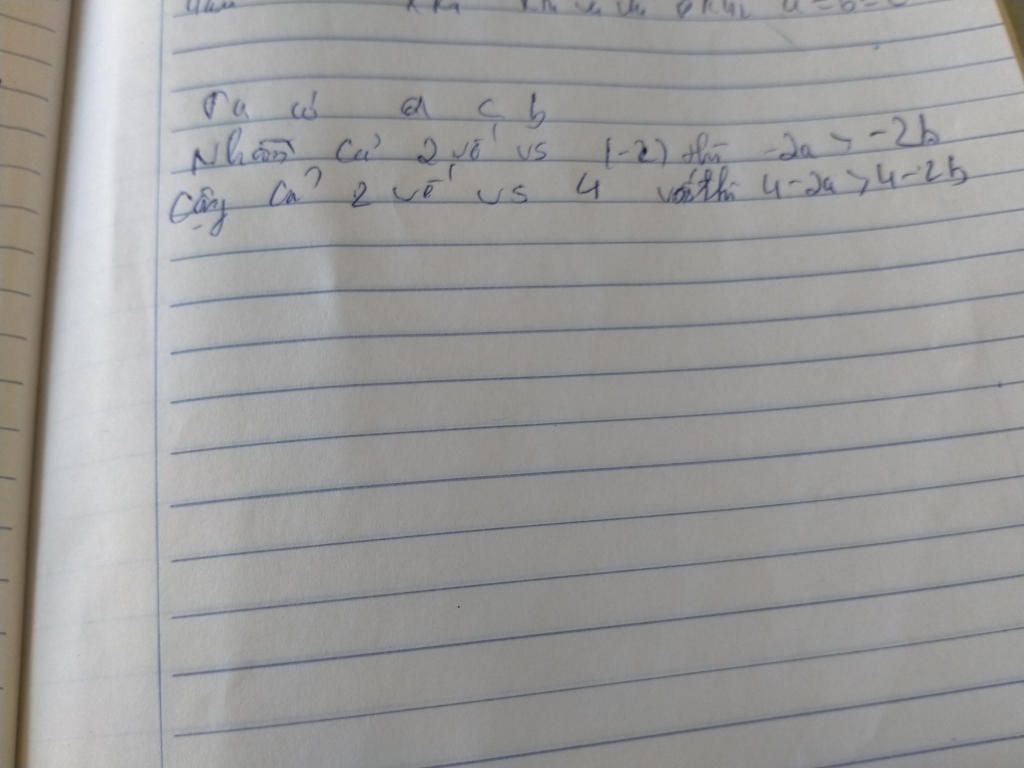 a = b =
Ta có a < b
Nhân cả 2 vế vs (-2) thì -2a > -2b
Cộng cả 2 vế vs 4 thì 4-2a > 4-2b